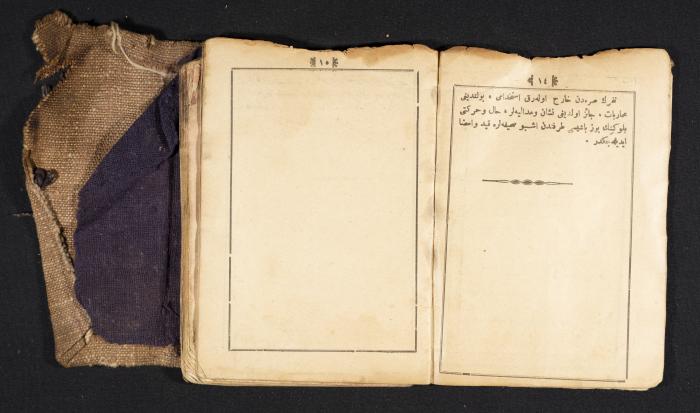 ١٤
نفرك صره‌دن خارج اوله‌رق استخدامی ، بولندیغی
محاربات ، جائز اولدیغی نشان ومدالیه‌لر ، حال وحركتی
بلوكنك یوز باشیسی طرفندن اشبو صحیفه‌لره قید وامضا
ایدیله‌جكدر .
١٥